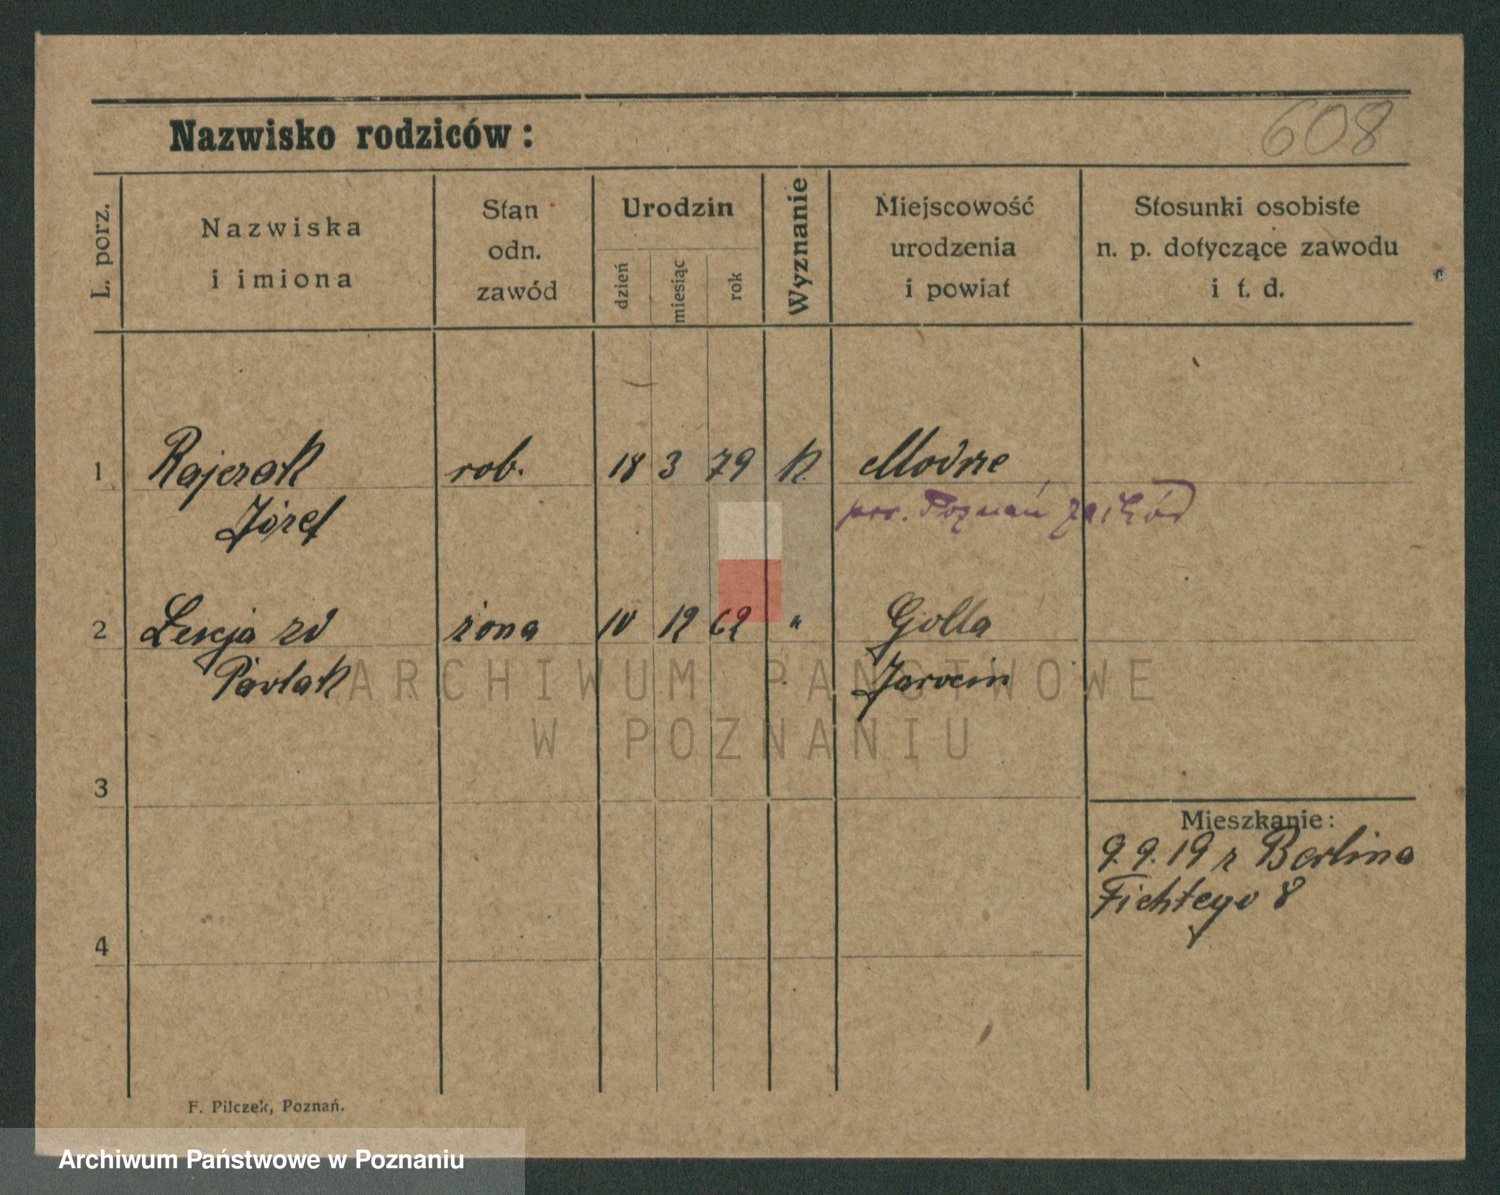 608
Nazwisko rodziców:
L. porz.
Nazwiska
i imiona
Stan
odn.
zawód
Urodzin
dzień
miesiąc
rok
Wyznanie
Miejscowość
urodzenia
i powiat
Stosunki osobiste
n. p. dotyczące zawodu
i t. d.
1 Rajczak rob. 18 3 79 k. Modrze
Józef pow. Poznań zachód
2 zd żona 12 69 " Golla
Pawlak Jarocin
3
4
Mieszkanie:
9.9.19 z Berlina
Fichtego 8
F. Pilczek, Poznań.
ARCHIWUM PAŃSTWOWE
W POZNANIU
Archiwum Państwowe w Poznaniu